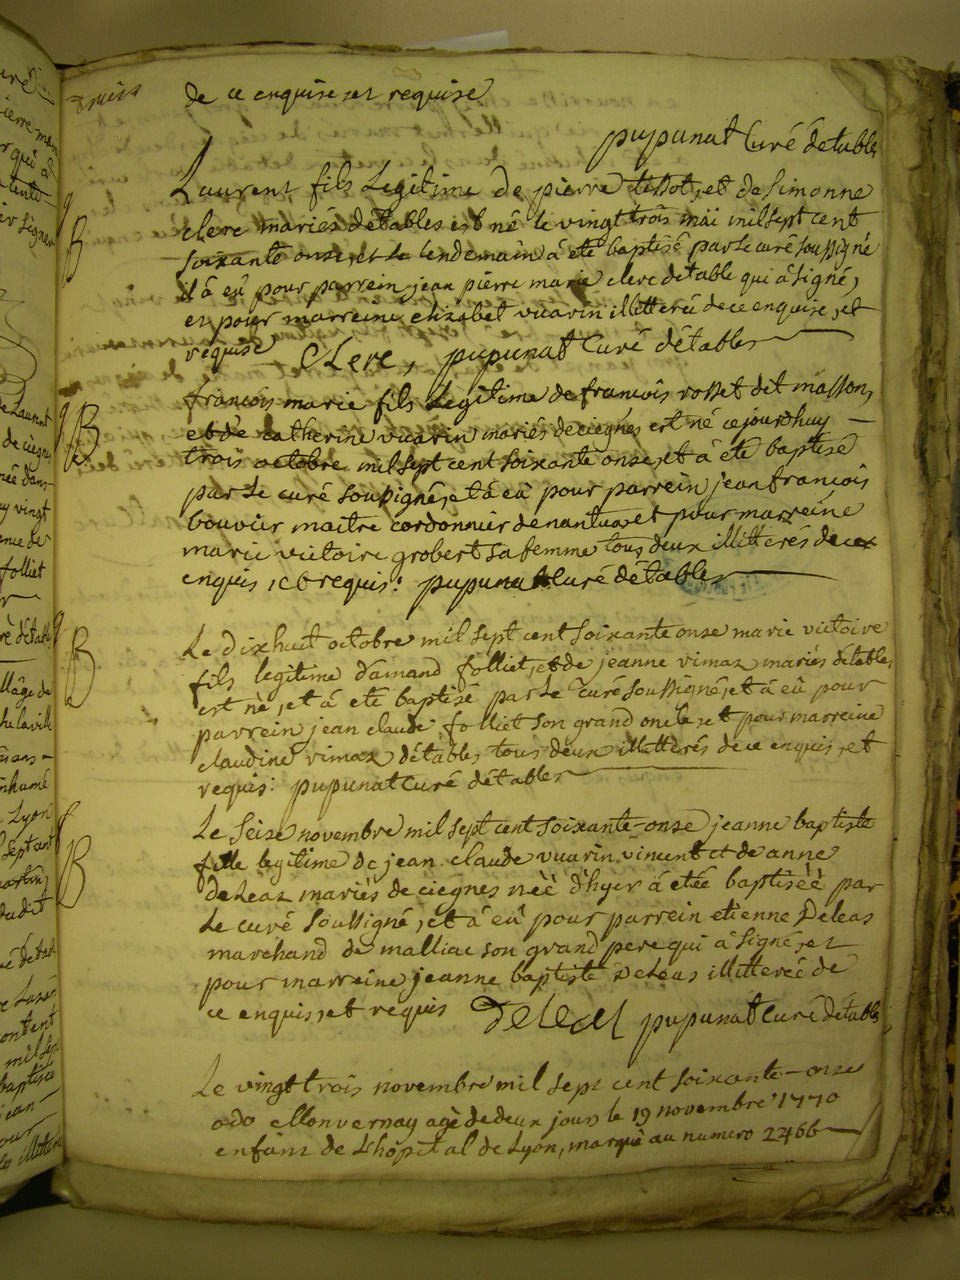 de ce enquise et requise
pupunat Curé détables
Laurent fils Legitime de pierre tissot, et de Simonne
clerc mariés détables est né le vingt trois mai mil sept cent
soixante onse, et le lendemain à été baptisé par le curé soussigné
il à eû pour parrein jean pierre marie clerc détable qui à signé,
et pour marreine elizabet vuarin illitterée de ce enquise, et
requise CLerc, pupunat Curé détables
françois marie fils Legitime de francois rosset dit masson,
et de catherine vuarin mariés de ciegnes est né cejourdhuy
trois octobre mil sept cent soixante onse, et à été baptisé
par le curé soussigné, et à eû pour parrein jean françois
bouvier maitre cordonnier de nantua, et pour marreine
marie victoire grobert sa femme tous deux illitterés de ce
enquis, et requis: pupunat Curé détables
Le dixhuit octobre mil sept cent soixante onse marie victoire
fils legitime d'amand folliet, et de jeanne vimaz mariés détables
est né, et à été baptisé par le Curé soussigné, et à eû pour
parrein jean claude folliet son grand oncle, et pour marreine
claudine vimaz détables tous deux illitterés de ce enquis, et
requis: pupunat Curé détables
Le seise novembre mil sept cent soixante-onse jeanne baptiste
fille legitime de jean claude vuarin vincent et de anne
deleaz mariés de ciegnes néé d'hyer à etée baptiséé par
le curé soussigné, et à eû pour parrein etienne Deleas
marchand de malliac son grand pere qui à signé, et
pour marreine jeanne baptiste Deleas illitterée de
ce enquis, et requis Deleas pupunat Curé détables
Le vingt trois novembre mil sept cent soixante-onse
agé de deux jours le 19 novembre 1770
enfant de L'hôpital de Lyon, marqué au numero 2466